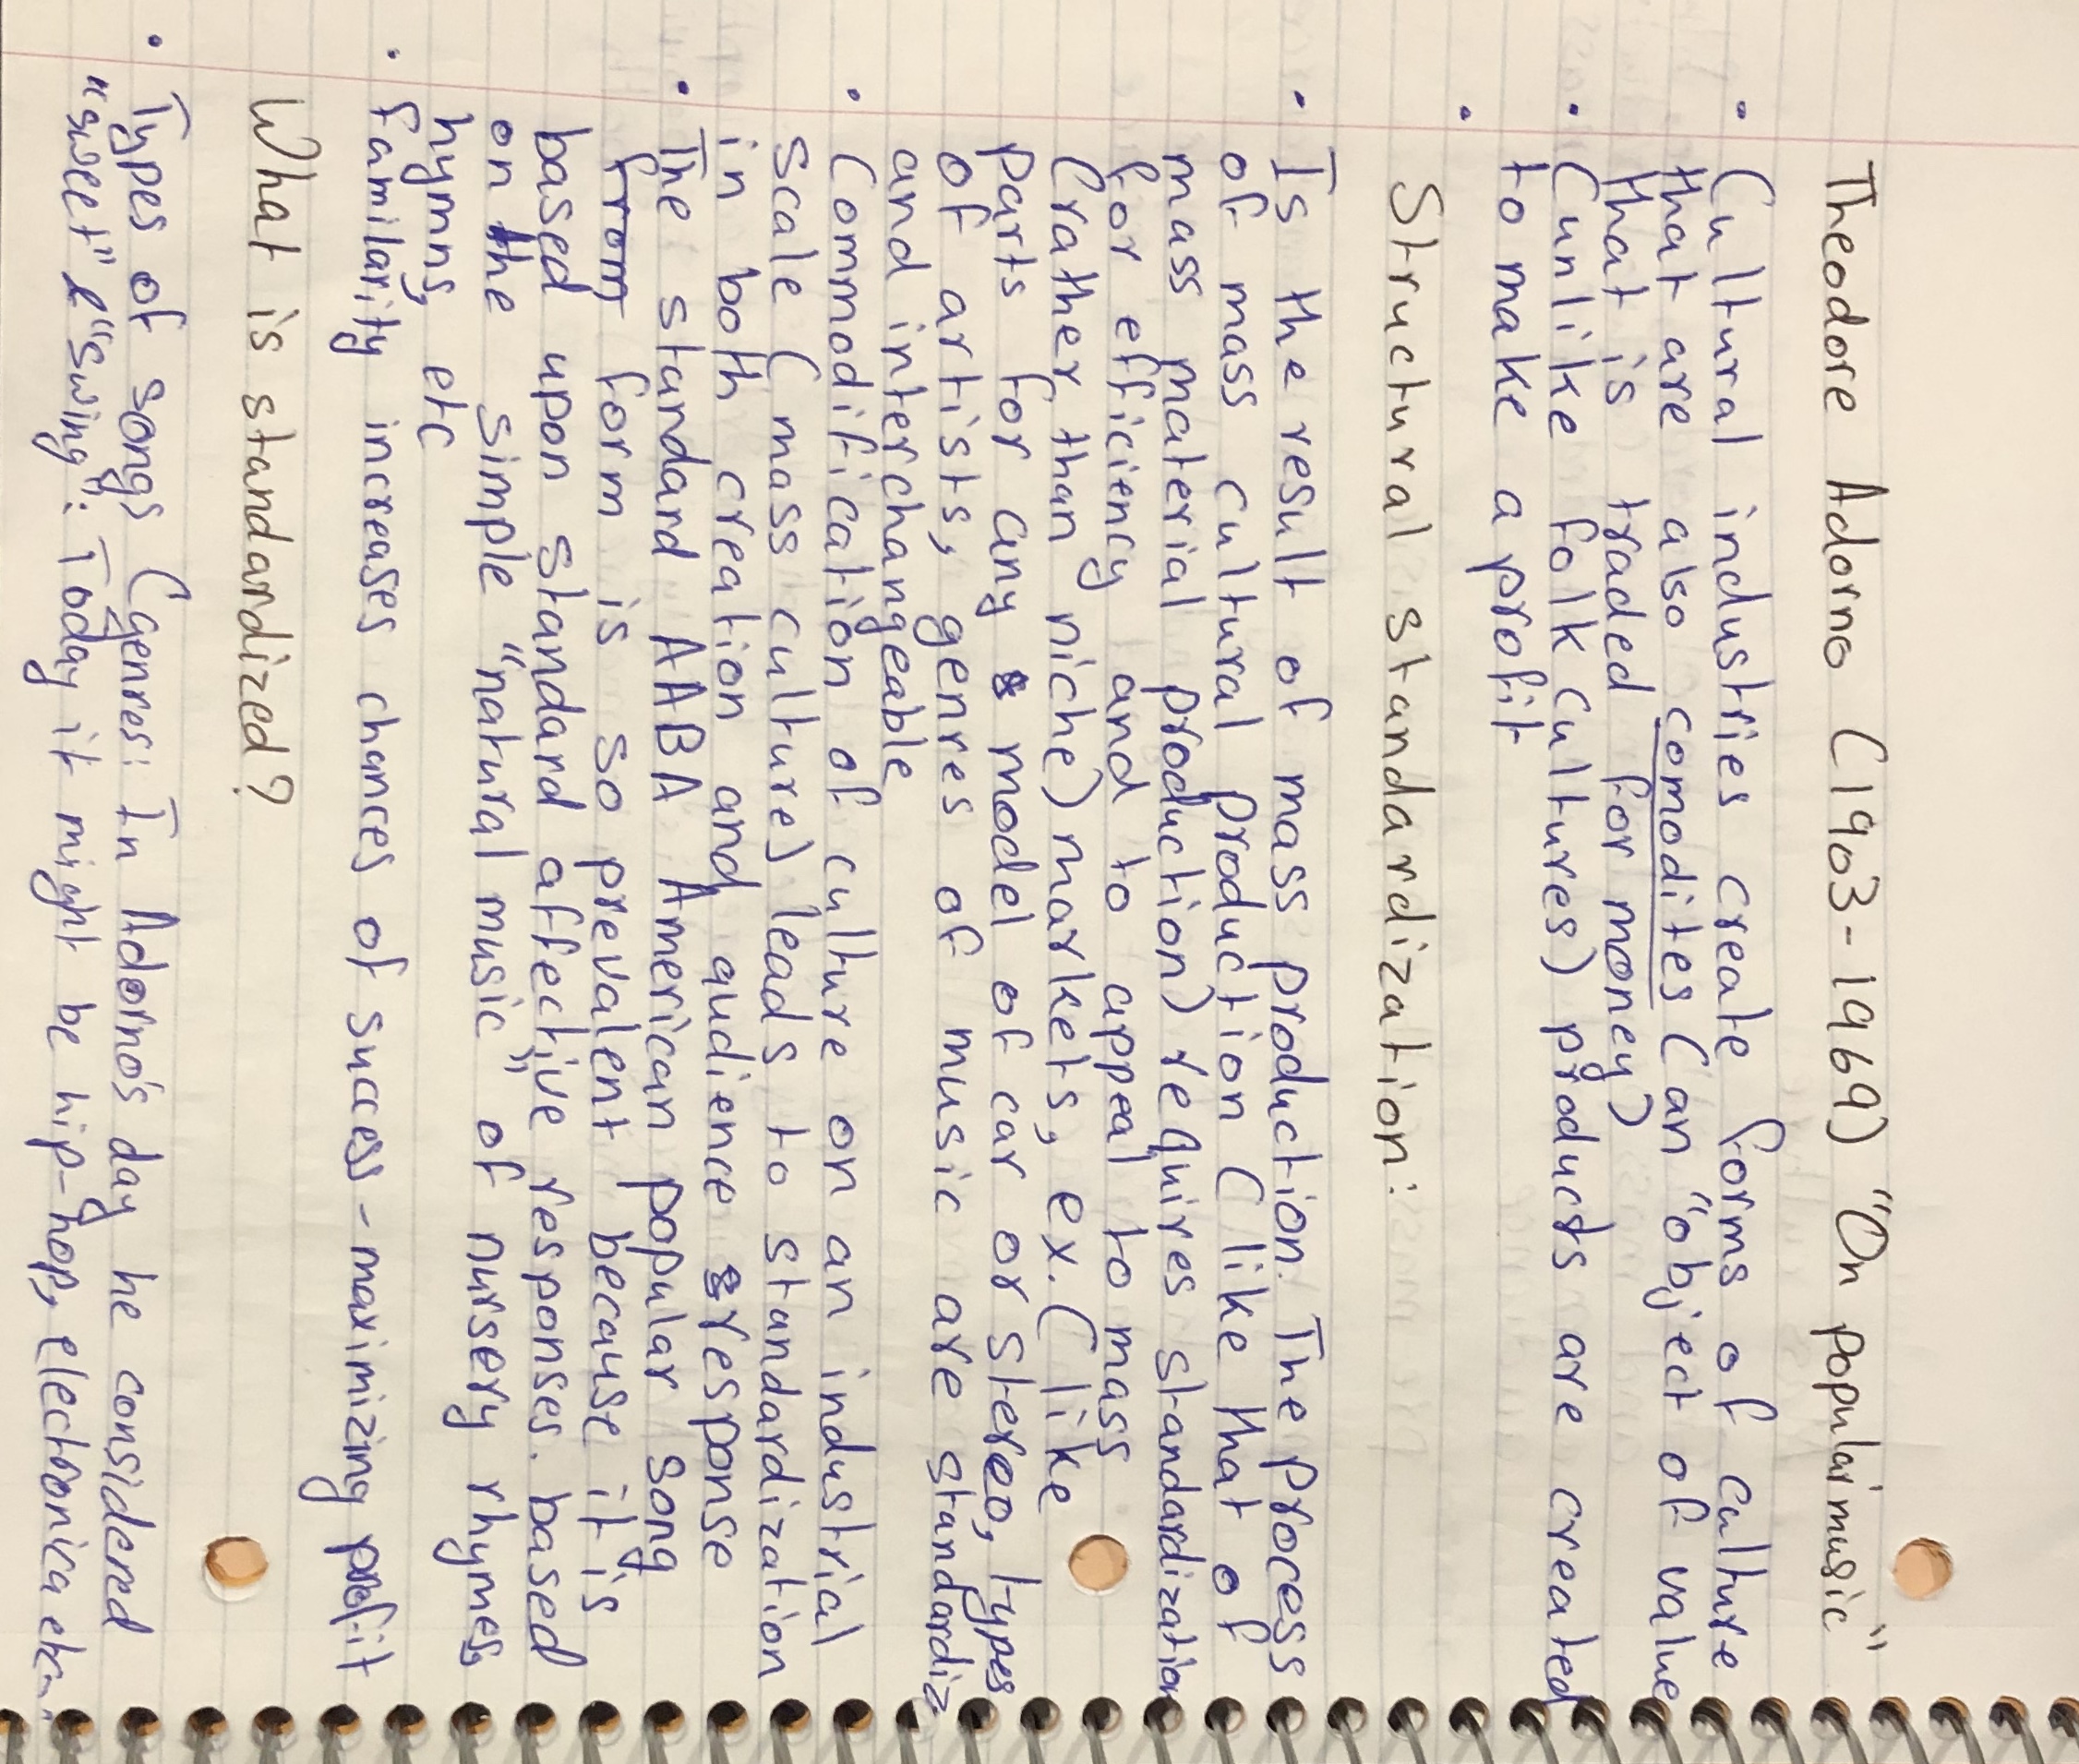 Theodore Adorno (1903-1969) "On popular music"
• Cultural industries create forms of culture
that are also comodites (an "object of value
that is traded for money)
• (unlike folk cultures) products are created
to make a profit
•
Structural standardization:
• Is the result of mass production. The process
of mass cultural production (like that of
mass material production) requires standardization
for efficiency and to appeal to mass
(rather than niche) markets, ex. (like
parts for any model of car or stereo, types
of artists, genres of music are standardiz
and interchangeable
• Commodification of culture on an industrial
scale (mass culture) leads to standardization
in both creation and audience response
• The standard AABA American popular song
from form is so prevalent because it is
based upon standard affective responses. based
on the simple "natural music" of nursery rhymes
hymns, etc
• familarity increases chances of success-maximizing profit
What is standardized?
• Types of songs (genres: In Adorno's day he considered
"sweet" & "swing": Today it might be hip-hop, electronica etc."